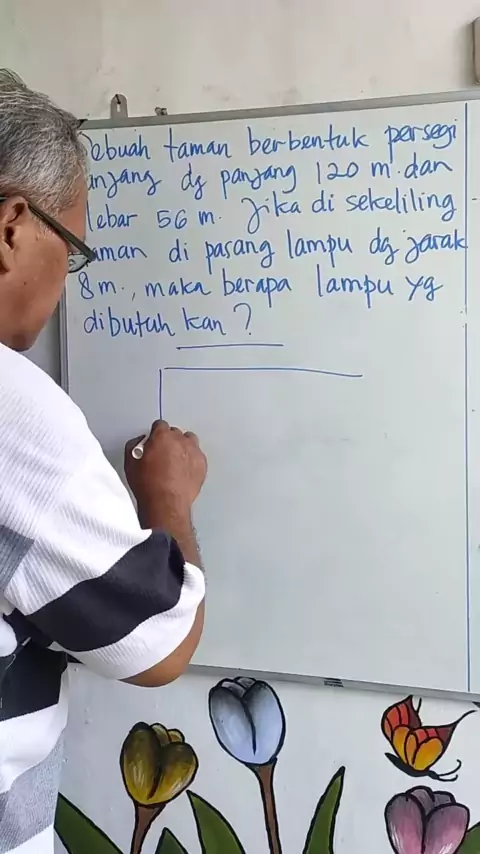 Sebuah taman berbentuk persegi
anjang dg panjang 120 m. dan
lebar 56 m. Jika di sekeliling
aman di pasang lampu dg jarak
8 m., maka berapa lampu yg
dibutuh kan ?